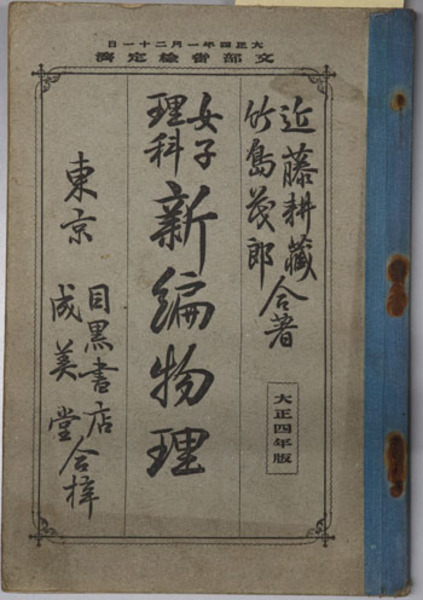 大正四年一月二十一日
文部省検定済
近藤耕藏
竹島茂郎
合著
大正四年版
女子
理科
新編物理
東京
目黒書店
成美堂
合梓